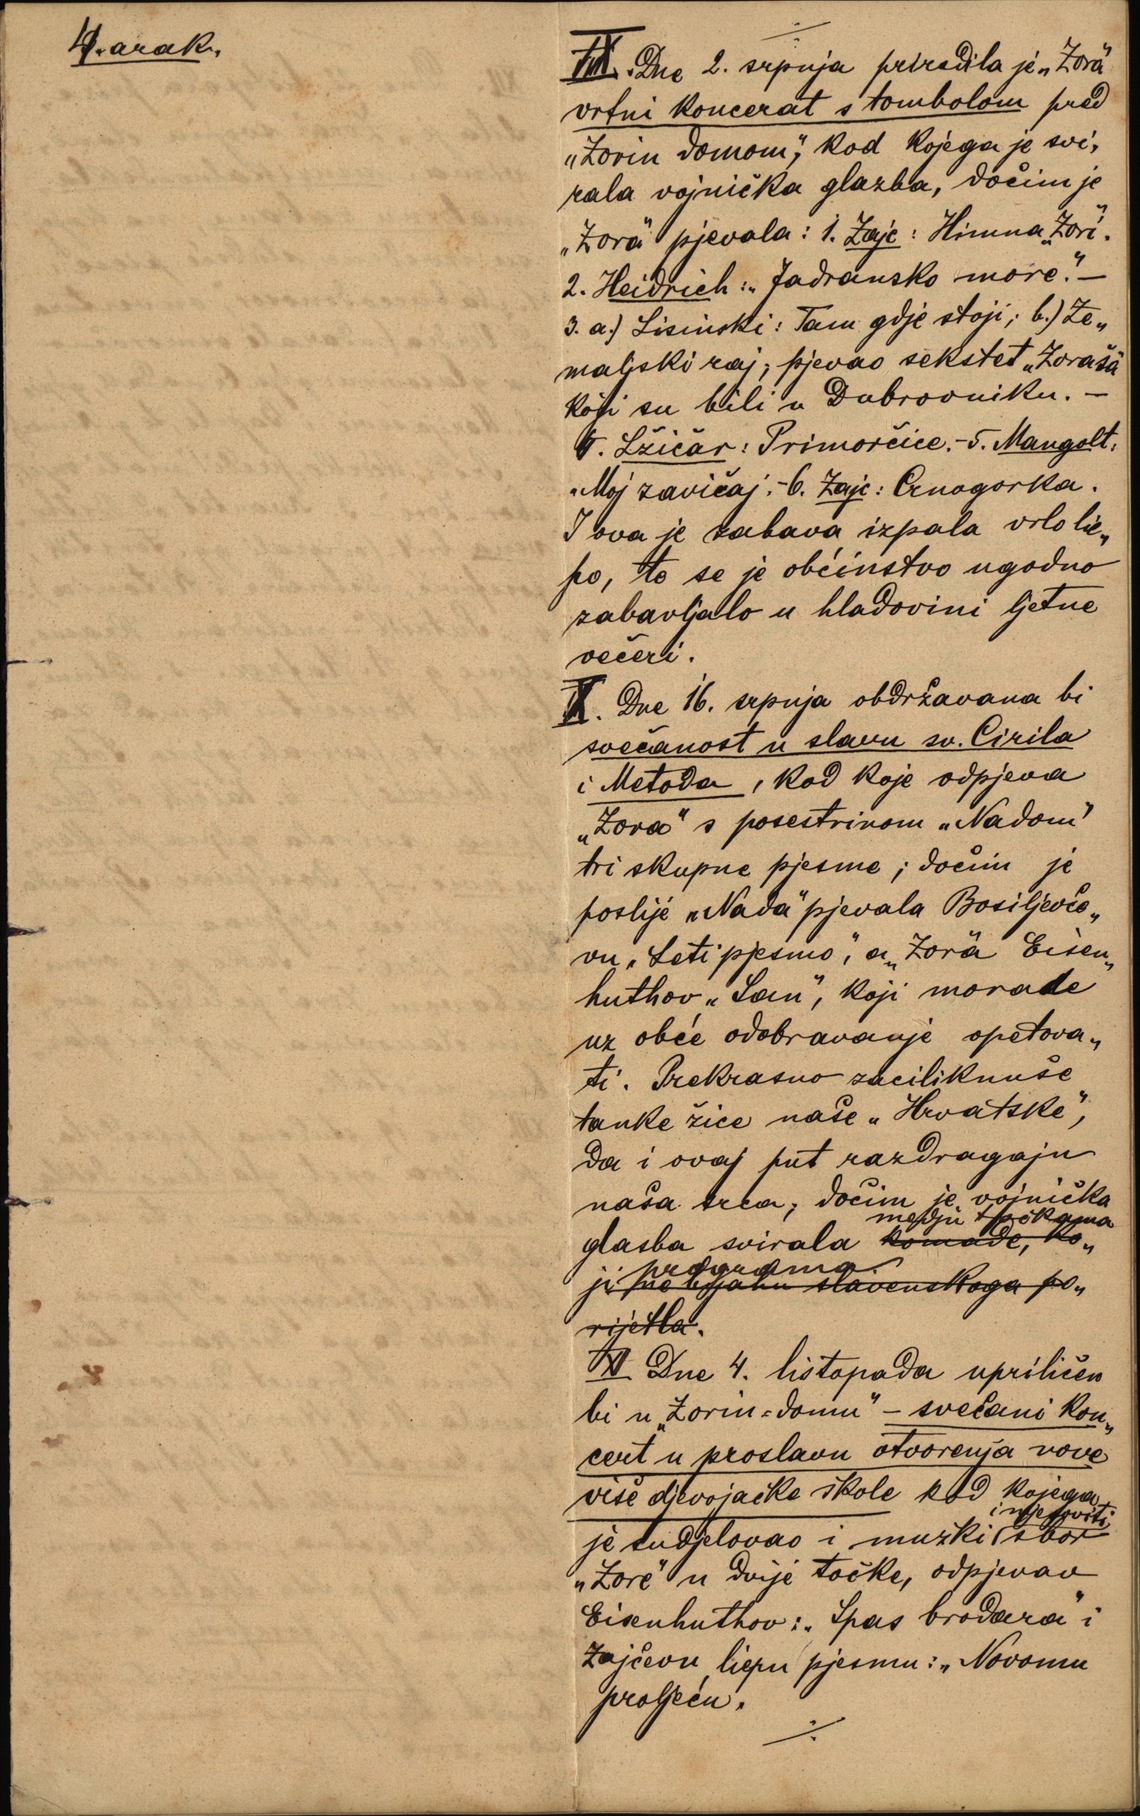 4. arak.
IX. Dne 2. srpnja priredila je „Zora“
vrtni koncerat s tombolom pred
„Zorin domom“, kod kojega je svi„
rala vojnička glazba, dočim je
„Zora“ pjevala: 1. Zajc: Himna „Zori“.
2. Heidrich: „Jadransko more“. —
3. a.) Lisinski: Tam gdje stoji; b.) Ze„
maljski raj, pjevao sekstet „Zoraša“
koji su bili u Dubrovniku. —
4. Lžičar: Primorčice. – 5. Mangolt:
„Moj zavičaj. – 6. Zajc: Crnogorka.
I ova je zabava izpala vrlo lie„
po, te se je občinstvo ugodno
zabavljalo u hladovini ljetne
večeri.
X. Dne 16. srpnja obdržavana bi
svečanost u slavu sv. Cirila
i Metoda, kod koje odpjeva
„Zora“ s posestrimom „Nadom“
tri skupne pjesme; dočim je
poslije „Nada“ pjevala Bosiljevče„
vu „Leti pjesmo“, a „Zora“ Eisen„
huthov „San“, koji morade
uz obće odobravanje opetova„
ti. Prekrasno zaciliknuše
tanke žice naše „Hrvatske“,
da i ovaj put razdragaju
naša srca, dočim je vojnička
medju točkama
glasba svirala komade, ko„
programa.
ji ne bijahu slavenskoga po„
rijetla.
XI Dne 4. listopada upriličen
bi u „Zorin-domu“ – svečani kon„
cert u proslavu otvorenja nove
više djevojačke škole kod kojega
i mješoviti
je sudjelovao i muzki zbor
„Zore“ u dvije točke, odpjevav
Eisenhuthov: „Spas brodara“ i
Zajčevu liepu pjesmu: „Novomu
proljeću“.